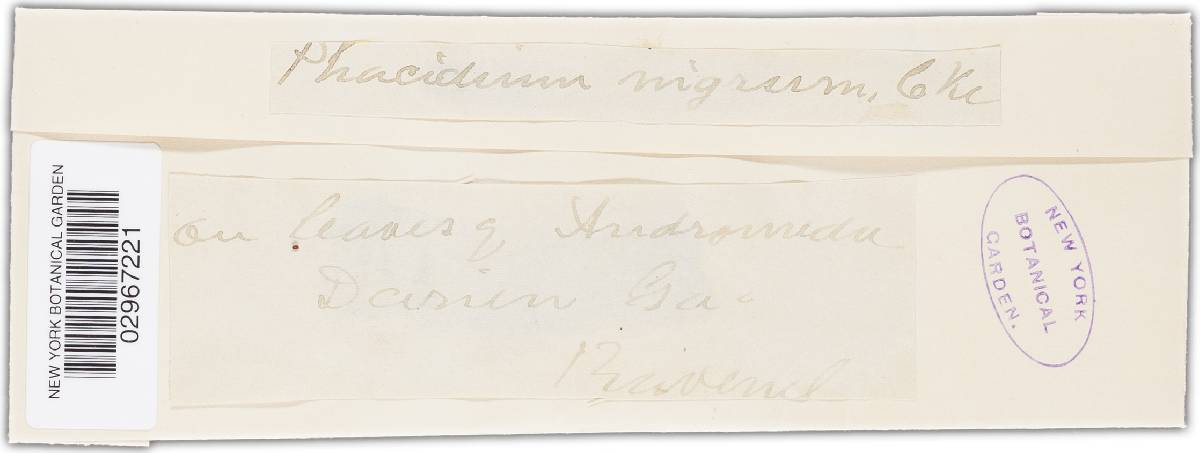 Phacidium nigrum, Cke
on leaves of Andromeda
Darien Ga.
Ravenel
NEW YORK BOTANICAL GARDEN
02967221
NEW YORK
BOTANICAL
GARDEN.